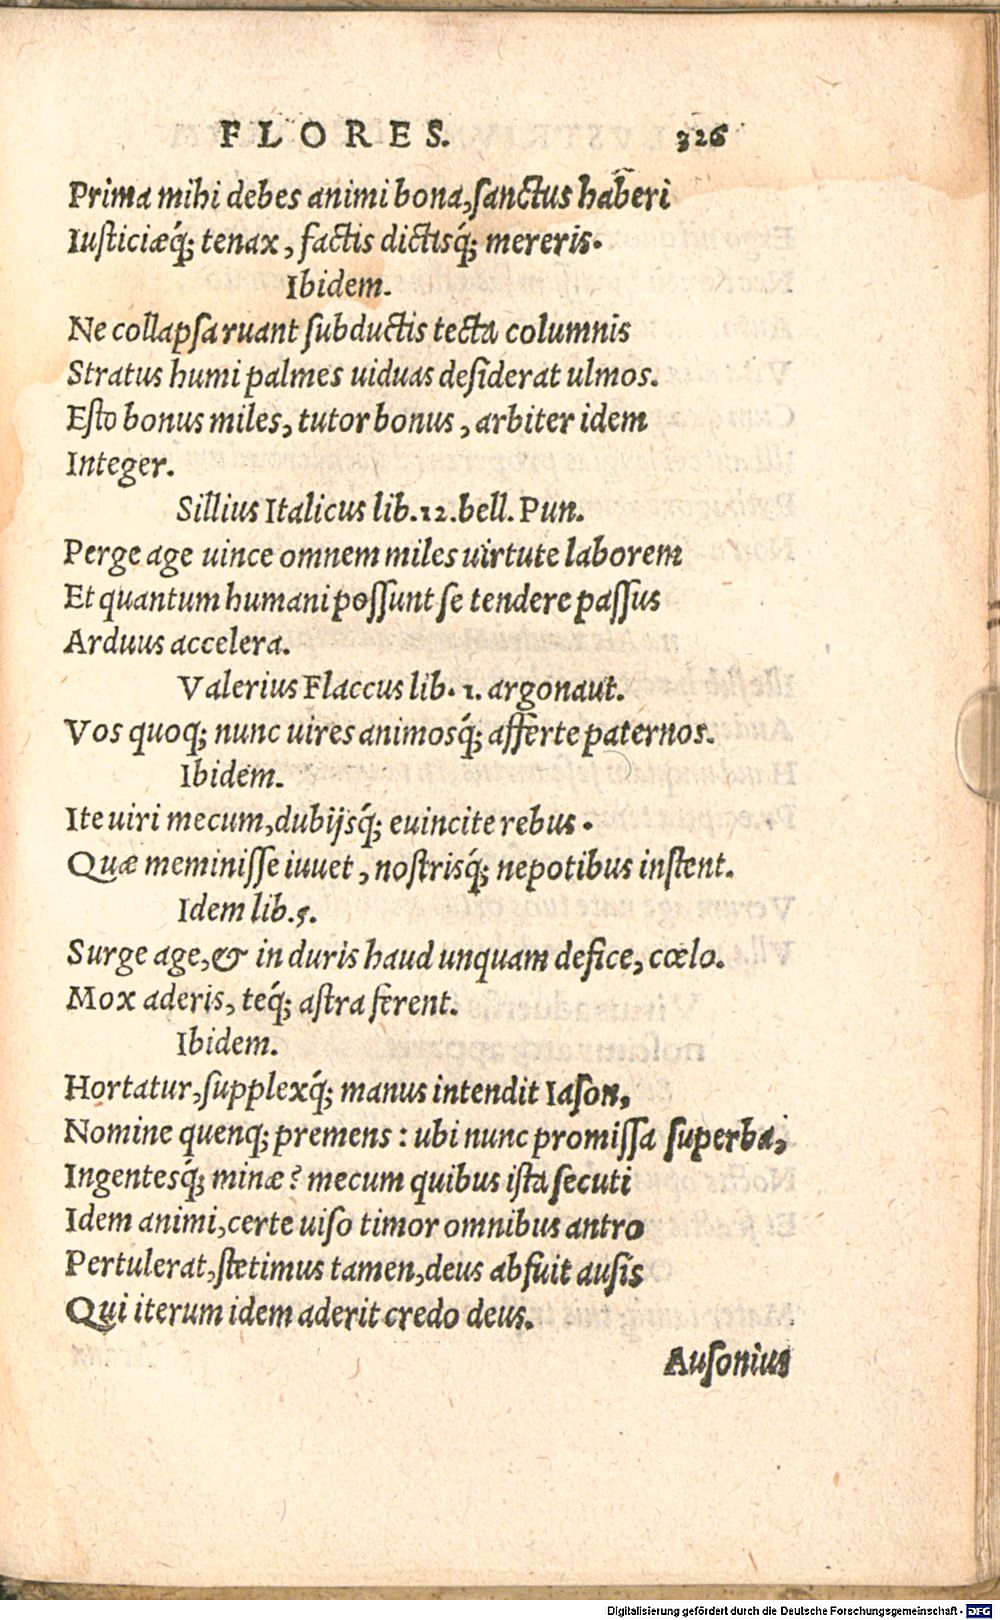 FLORES. 326
Prima mihi debes animi bona, sanctus haberi
Iusticiæq́; tenax, factis dictisq́; mereris.
Ibidem.
Ne collapsa ruant subductis tecta columnis
Stratus humi palmes uiduas desiderat ulmos.
Esto bonus miles, tutor bonus, arbiter idem
Integer.
Sillius Italicus lib. 12. bell. Pun.
Perge age uince omnem miles uirtute laborem
Et quantum humani possunt se tendere passus
Arduus accelera.
Valerius Flaccus lib. 1. argonaut.
Vos quoq; nunc uires animosq́; afferte paternos.
Ibidem.
Ite uiri mecum, dubijsq́; euincite rebus.
Quæ meminisse iuuet, nostrisq́; nepotibus instent.
Idem lib. 5.
Surge age, & in duris haud unquam defice, cœlo.
Mox aderis, teq́; astra ferent.
Ibidem.
Hortatur, supplexq́; manus intendit Iason,
Nomine quenq; premens: ubi nunc promissa superba,
Ingentesq́; minæ? mecum quibus ista secuti
Idem animi, certe uiso timor omnibus antro
Pertulerat, stetimus tamen, deus abfuit ausis
Qui iterum idem aderit credo deus.
Ausonius
Digitalisierung gefördert durch die Deutsche Forschungsgemeinschaft - DFG